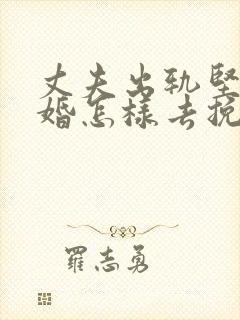 丈夫出轨坚
婚怎样去挽
羅志勇